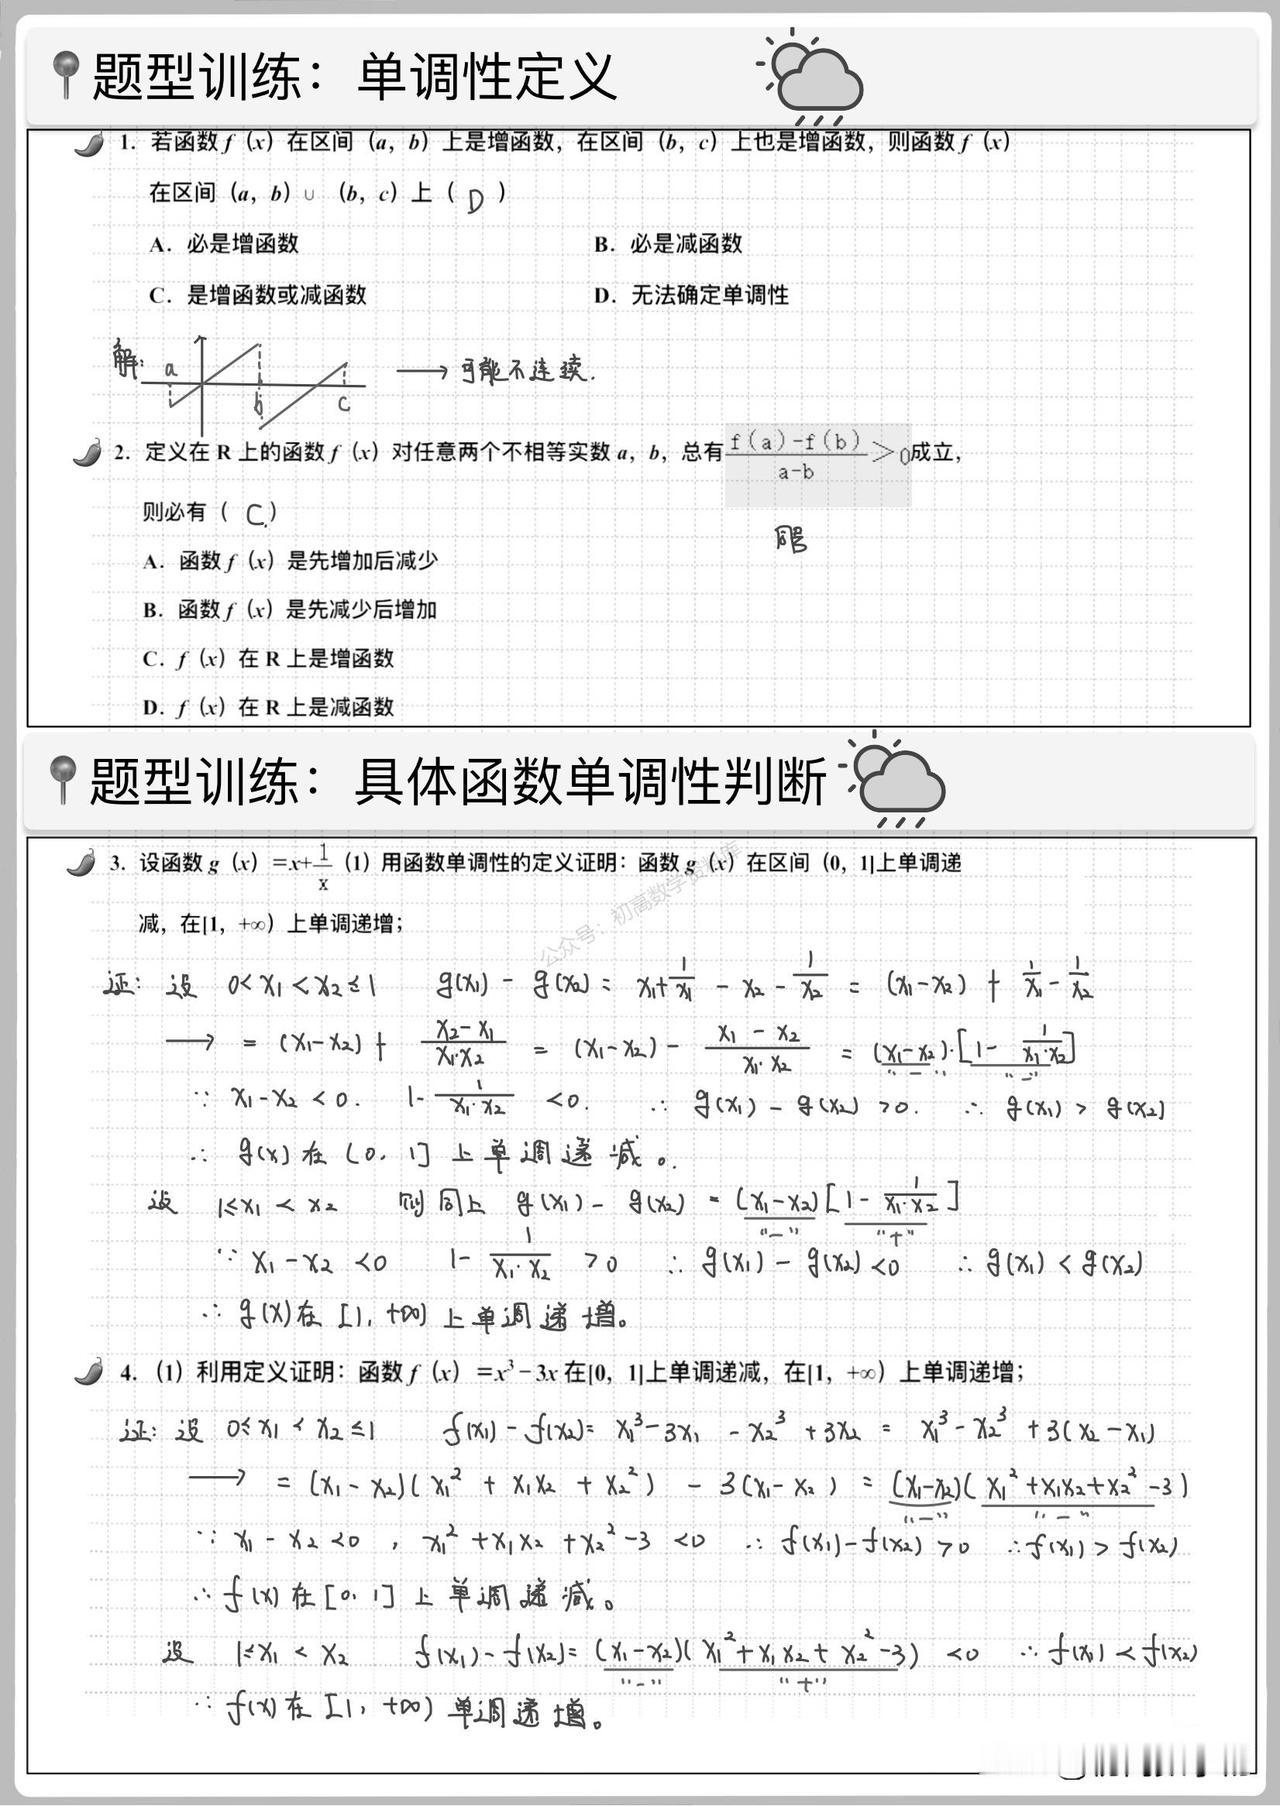 题型训练：单调性定义
1. 若函数 f（x）在区间（a，b）上是增函数，在区间（b，c）上也是增函数，则函数 f（x）
在区间（a，b）∪（b，c）上（ D ）
A．必是增函数 B．必是减函数
C．是增函数或减函数 D．无法确定单调性
解： a b c → 可能不连续.
2. 定义在 R 上的函数 f（x）对任意两个不相等实数 a，b，总有 (f(a)-f(b))/(a-b) >0成立，
则必有（ C.）
同号
A．函数 f（x）是先增加后减少
B．函数 f（x）是先减少后增加
C．f（x）在 R 上是增函数
D．f（x）在 R 上是减函数
题型训练：具体函数单调性判断
3. 设函数 g（x）=x+1/x（1）用函数单调性的定义证明：函数 g（x）在区间（0，1]上单调递
减，在[1，+∞）上单调递增；
公众号：初高数学资料库
证：设 0<x₁<x₂≤1 g(x₁) - g(x₂) = x₁+1/x₁ - x₂ - 1/x₂ = (x₁-x₂) + 1/x₁ - 1/x₂
→ = (x₁-x₂) + (x₂-x₁)/(x₁·x₂) = (x₁-x₂) - (x₁-x₂)/(x₁·x₂) = (x₁-x₂)·[1- 1/(x₁·x₂)]
"-" "-"
∵ x₁-x₂<0. 1- 1/(x₁·x₂) <0. ∴ g(x₁) - g(x₂) >0. ∴ g(x₁) > g(x₂)
∴ g(x)在(0，1]上单调递减。
设 1≤x₁<x₂ 则同上 g(x₁) - g(x₂) = (x₁-x₂)[1- 1/(x₁·x₂)]
"-" "+"
∵ x₁-x₂<0 1- 1/(x₁·x₂) >0 ∴ g(x₁) - g(x₂)<0 ∴ g(x₁) < g(x₂)
∴ g(x)在[1，+∞)上单调递增。
4. （1）利用定义证明：函数 f（x）=x³-3x 在[0，1]上单调递减，在[1，+∞）上单调递增；
证：设 0≤x₁<x₂≤1 f(x₁) - f(x₂)= x₁³-3x₁ -x₂³ +3x₂ = x₁³-x₂³ +3(x₂-x₁)
→ = (x₁-x₂)(x₁² + x₁x₂ + x₂²) - 3(x₁-x₂) = (x₁-x₂)(x₁²+x₁x₂+x₂²-3)
"-" "-"
∵ x₁-x₂<0，x₁²+x₁x₂+x₂²-3<0 ∴ f(x₁)-f(x₂)>0 ∴f(x₁)>f(x₂)
∴ f(x)在[0，1]上单调递减。
设 1≤x₁<x₂ f(x₁)-f(x₂)= (x₁-x₂)(x₁²+x₁x₂+x₂²-3) <0 ∴ f(x₁)<f(x₂)
"-" "+"
∴ f(x)在[1，+∞)单调递增。